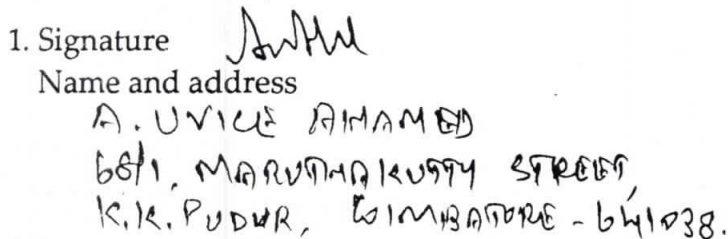 1. Signature
Name and address
A. UVICE AHAMED
68/1, MARUTHAKUTTY STREET,
K.K. PUDUR, COIMBATORE - 641038.